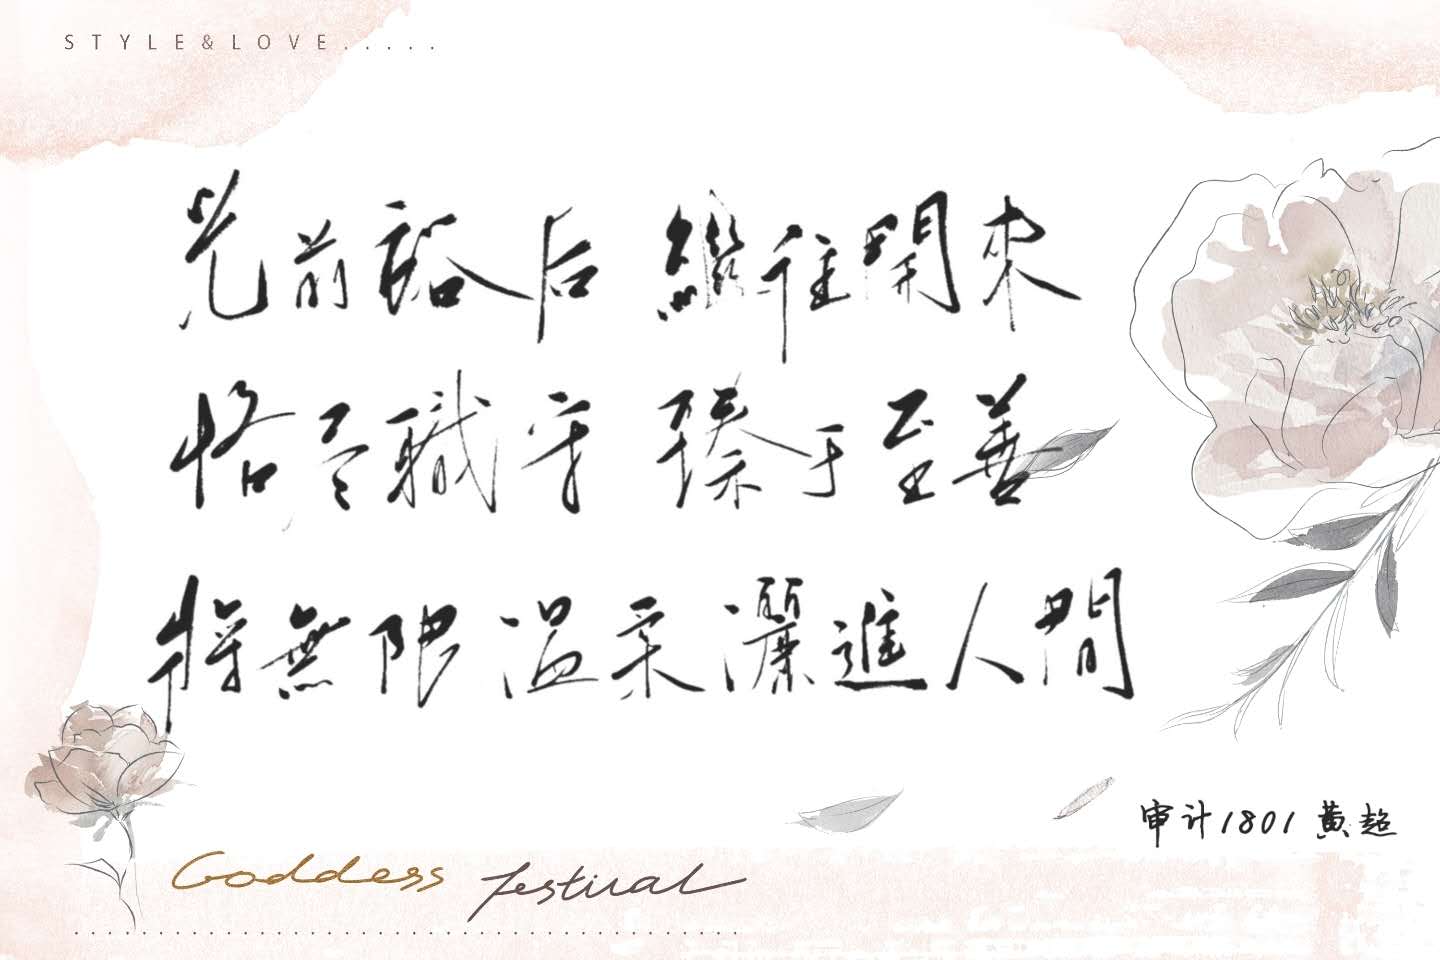 STYLE&LOVE.....
光前裕后 繼往開來
恪尽職守 臻于至善
将無限温柔灑進人間
审计1801 黄超
Goddess festival